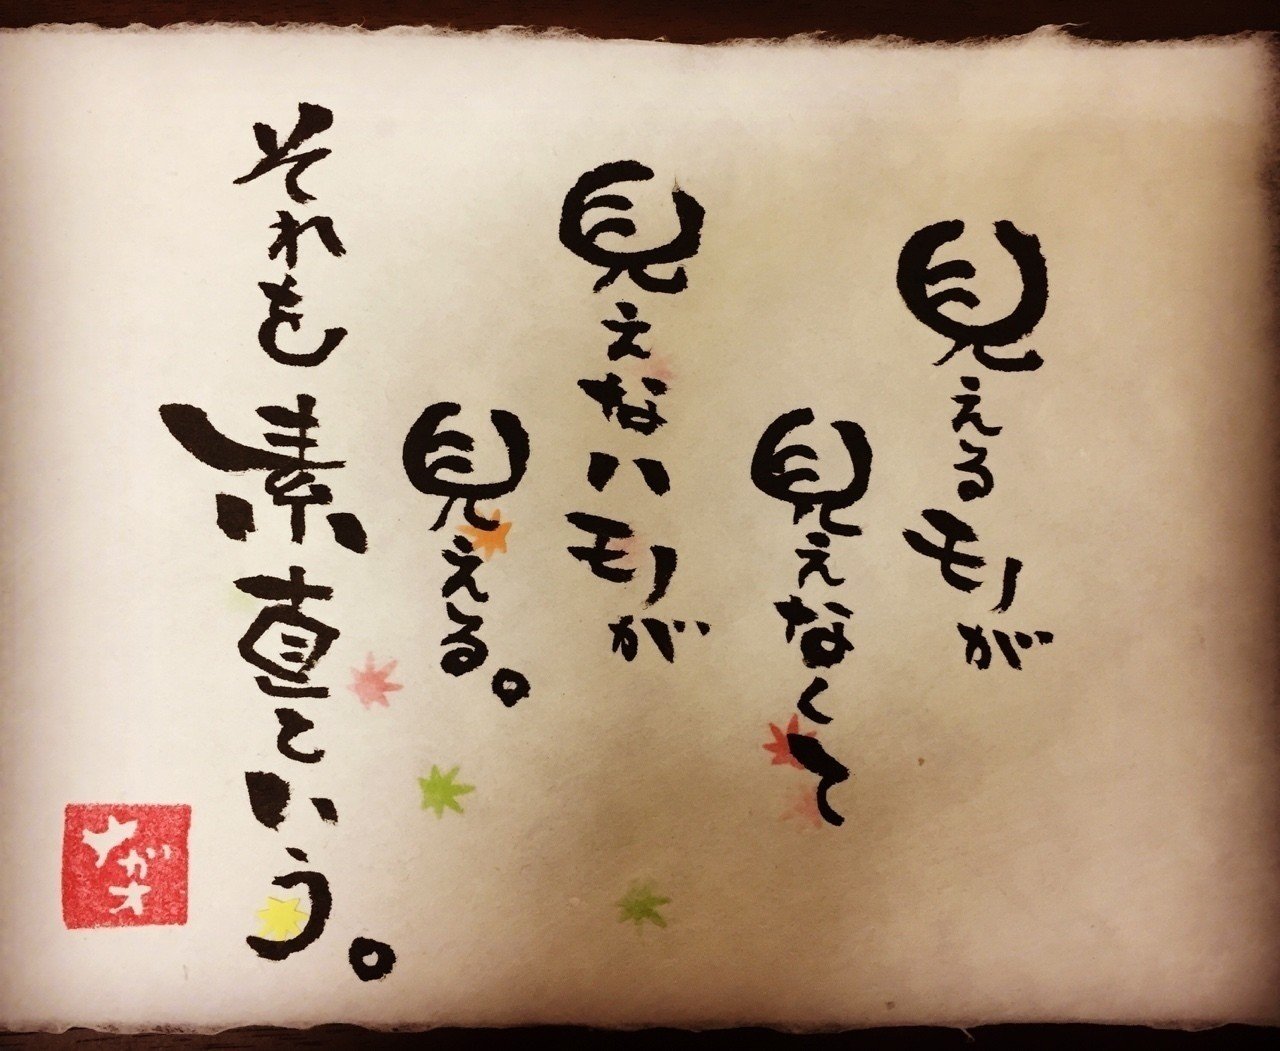 見えるモノが
見えなくて
見えないモノが
見える。
それを素直という。
ナガオ